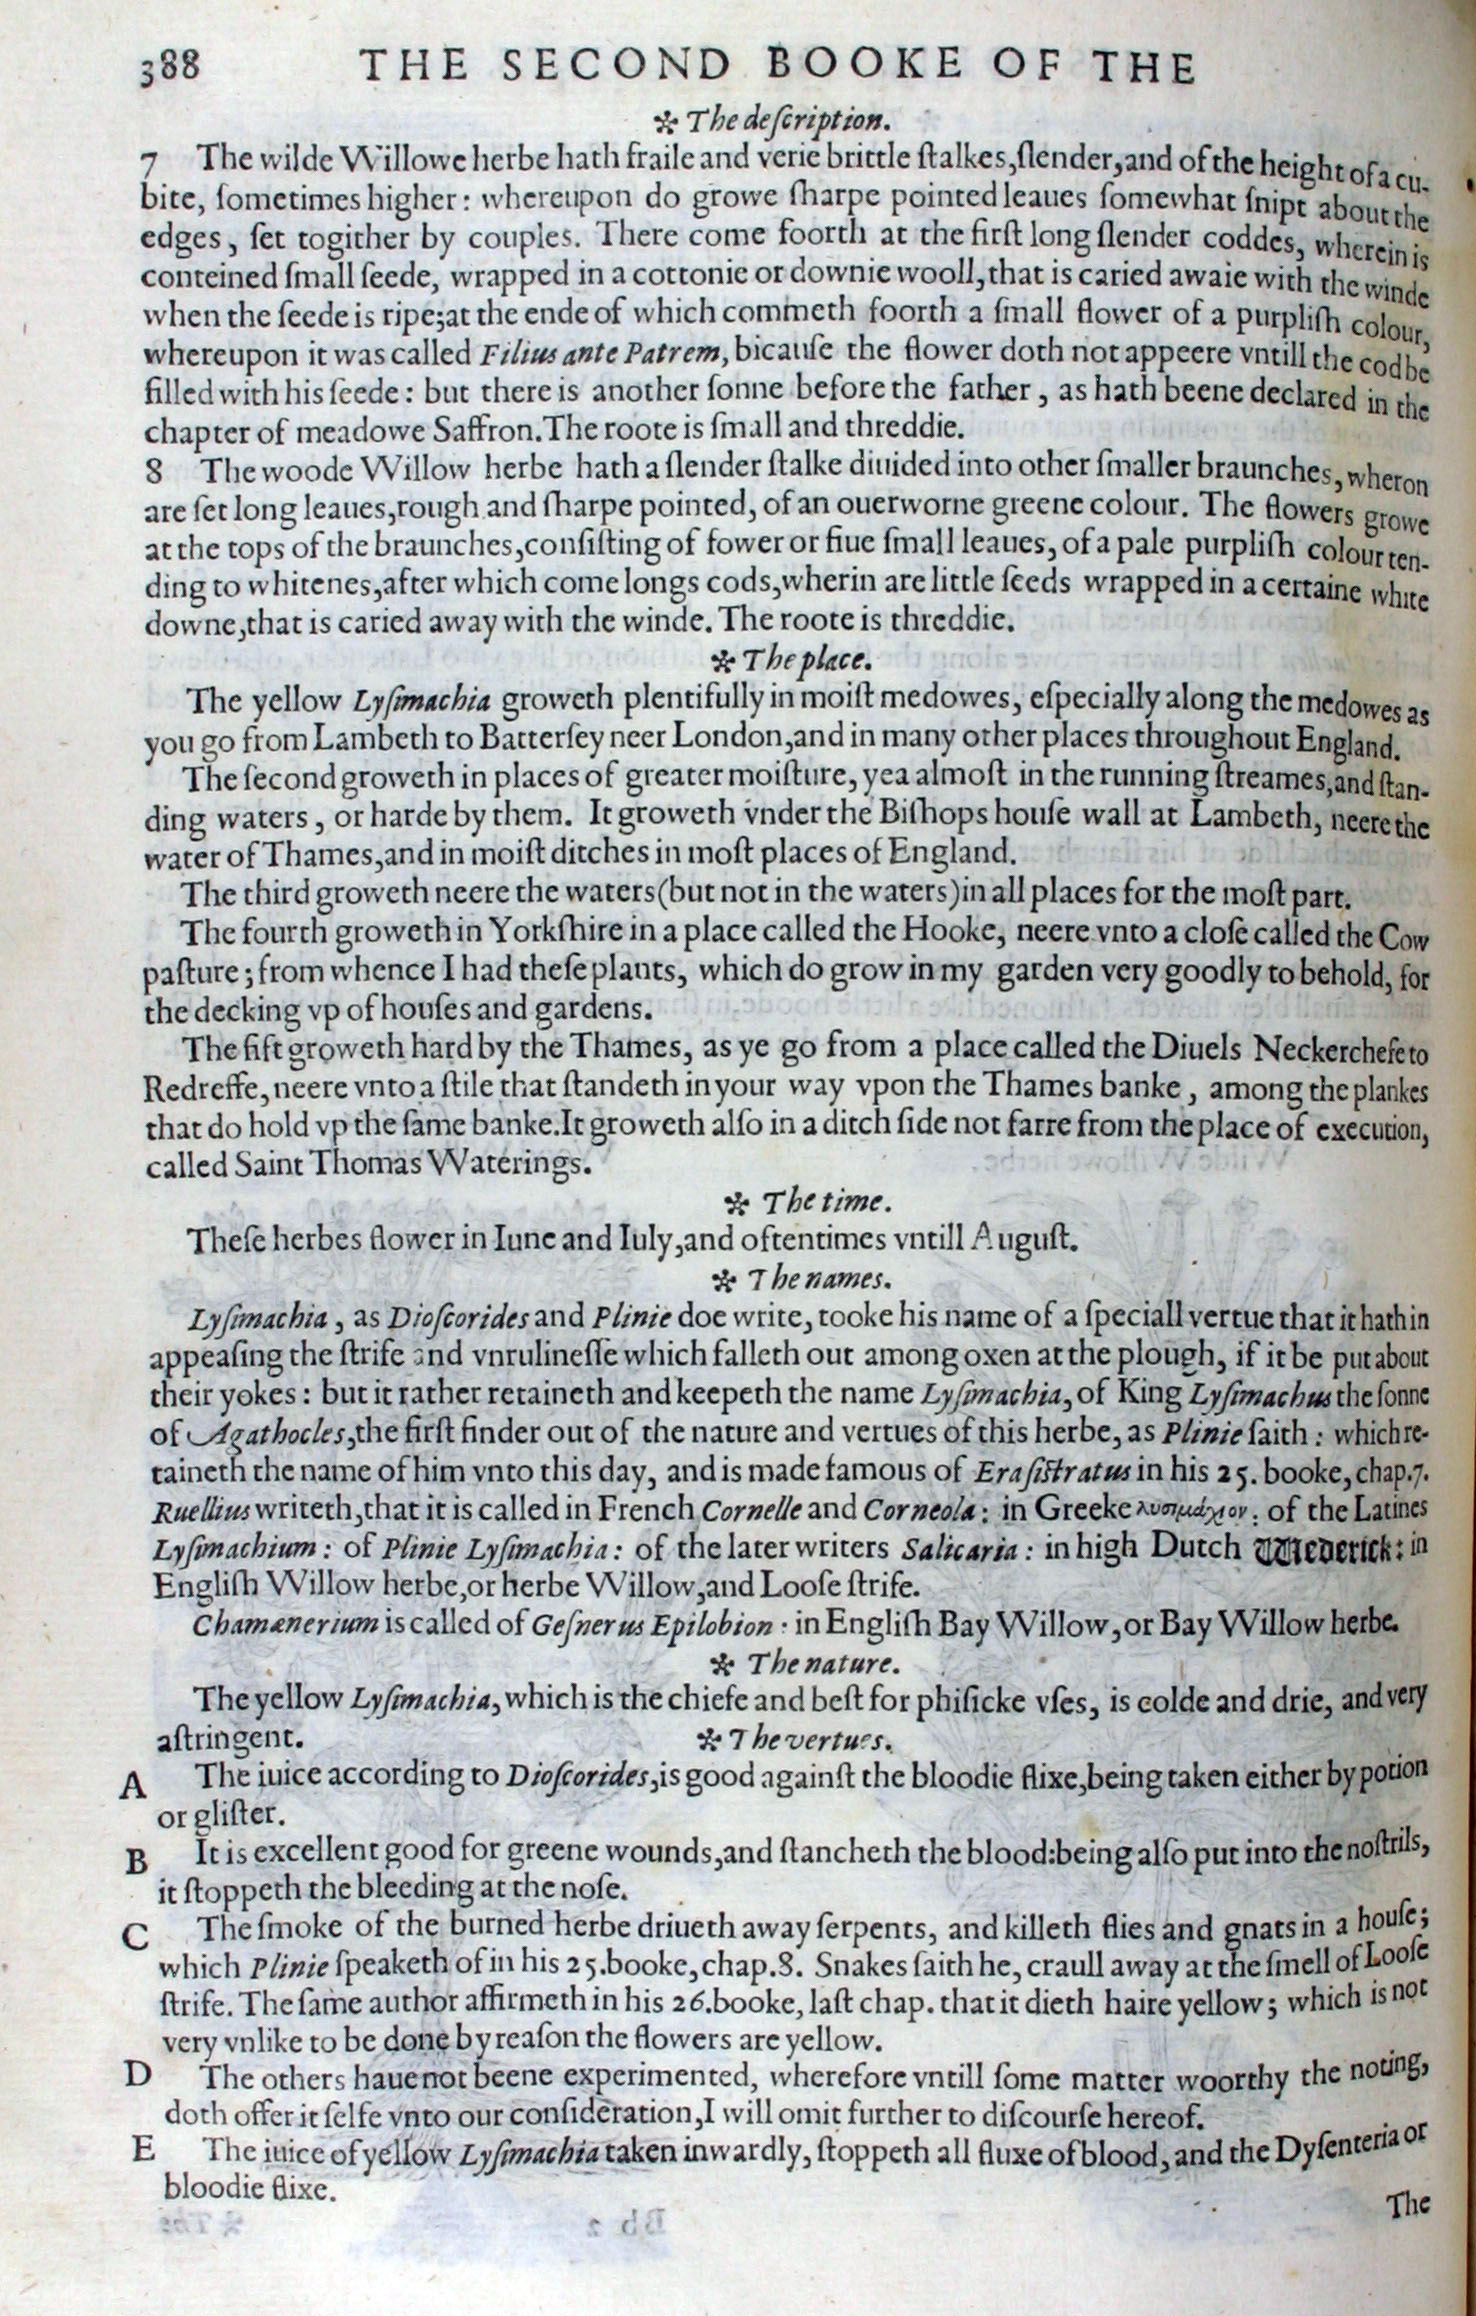 388 THE SECOND BOOKE OF THE
✲ The deſcription.
7 The wilde Willowe herbe hath fraile and verie brittle ſtalkes, ſlender, and of the height of a cu-
bite, ſometimes higher: whereupon do growe ſharpe pointed leaues ſomewhat ſnipt about the
edges, ſet togither by couples. There come foorth at the firſt long ſlender coddes, wherein is
conteined ſmall ſeede, wrapped in a cottonie or downie wooll, that is caried awaie with the winde
when the ſeede is ripe; at the ende of which commeth foorth a ſmall flower of a purpliſh colour,
whereupon it was called Filius ante Patrem, bicauſe the flower doth not appeere vntill the cod be
filled with his ſeede: but there is another ſonne before the father, as hath beene declared in the
chapter of meadowe Saffron. The roote is ſmall and threddie.
8 The woode Willow herbe hath a ſlender ſtalke diuided into other ſmaller braunches, wheron
are ſet long leaues, rough and ſharpe pointed, of an ouerworne greene colour. The flowers growe
at the tops of the braunches, conſiſting of fower or fiue ſmall leaues, of a pale purpliſh colour ten-
ding to whitenes, after which come longs cods, wherin are little ſeeds wrapped in a certaine white
downe, that is caried away with the winde. The roote is threddie.
✲ The place.
The yellow Lyſimachia groweth plentifully in moiſt medowes, eſpecially along the medowes as
you go from Lambeth to Batterſey neer London, and in many other places throughout England.
The ſecond groweth in places of greater moiſture, yea almoſt in the running ſtreames, and ſtan-
ding waters, or harde by them. It groweth vnder the Biſhops houſe wall at Lambeth, neere the
water of Thames, and in moiſt ditches in moſt places of England.
The third groweth neere the waters (but not in the waters) in all places for the moſt part.
The fourth groweth in Yorkſhire in a place called the Hooke, neere vnto a cloſe called the Cow
paſture; from whence I had theſe plants, which do grow in my garden very goodly to behold, for
the decking vp of houſes and gardens.
The fift groweth hard by the Thames, as ye go from a place called the Diuels Neckerchefe to
Redreffe, neere vnto a ſtile that ſtandeth in your way vpon the Thames banke, among the plankes
that do hold vp the ſame banke. It groweth alſo in a ditch ſide not farre from the place of execution,
called Saint Thomas Waterings.
✲ The time.
Theſe herbes flower in Iune and Iuly, and oftentimes vntill Auguſt.
✲ The names.
Lyſimachia, as Dioſcorides and Plinie doe write, tooke his name of a ſpeciall vertue that it hath in
appeaſing the ſtrife and vnrulineſſe which falleth out among oxen at the plough, if it be put about
their yokes: but it rather retaineth and keepeth the name Lyſimachia, of King Lyſimachus the ſonne
of Agathocles, the firſt finder out of the nature and vertues of this herbe, as Plinie ſaith: which re-
taineth the name of him vnto this day, and is made famous of Eraſiſtratus in his 25. booke, chap. 7.
Ruellius writeth, that it is called in French Cornelle and Corneola: in Greeke λυσιμάχιον: of the Latines
Lyſimachium: of Plinie Lyſimachia: of the later writers Salicaria: in high Dutch Wiederick: in
Engliſh Willow herbe, or herbe Willow, and Looſe ſtrife.
Chamænerium is called of Geſnerus Epilobion: in Engliſh Bay Willow, or Bay Willow herbe.
✲ The nature.
The yellow Lyſimachia, which is the chiefe and beſt for phiſicke vſes, is colde and drie, and very
aſtringent.
✲ The vertues.
A The iuice according to Dioſcorides, is good againſt the bloodie flixe, being taken either by potion
or gliſter.
B It is excellent good for greene wounds, and ſtancheth the blood: being alſo put into the noſtrils,
it ſtoppeth the bleeding at the noſe.
C The ſmoke of the burned herbe driueth away ſerpents, and killeth flies and gnats in a houſe;
which Plinie ſpeaketh of in his 25. booke, chap. 8. Snakes ſaith he, craull away at the ſmell of Looſe
ſtrife. The ſame author affirmeth in his 26. booke, laſt chap. that it dieth haire yellow; which is not
very vnlike to be done by reaſon the flowers are yellow.
D The others haue not beene experimented, wherefore vntill ſome matter woorthy the noting,
doth offer it ſelfe vnto our conſideration, I will omit further to diſcourſe hereof.
E The iuice of yellow Lyſimachia taken inwardly, ſtoppeth all fluxe of blood, and the Dyſenteria or
bloodie flixe.
The